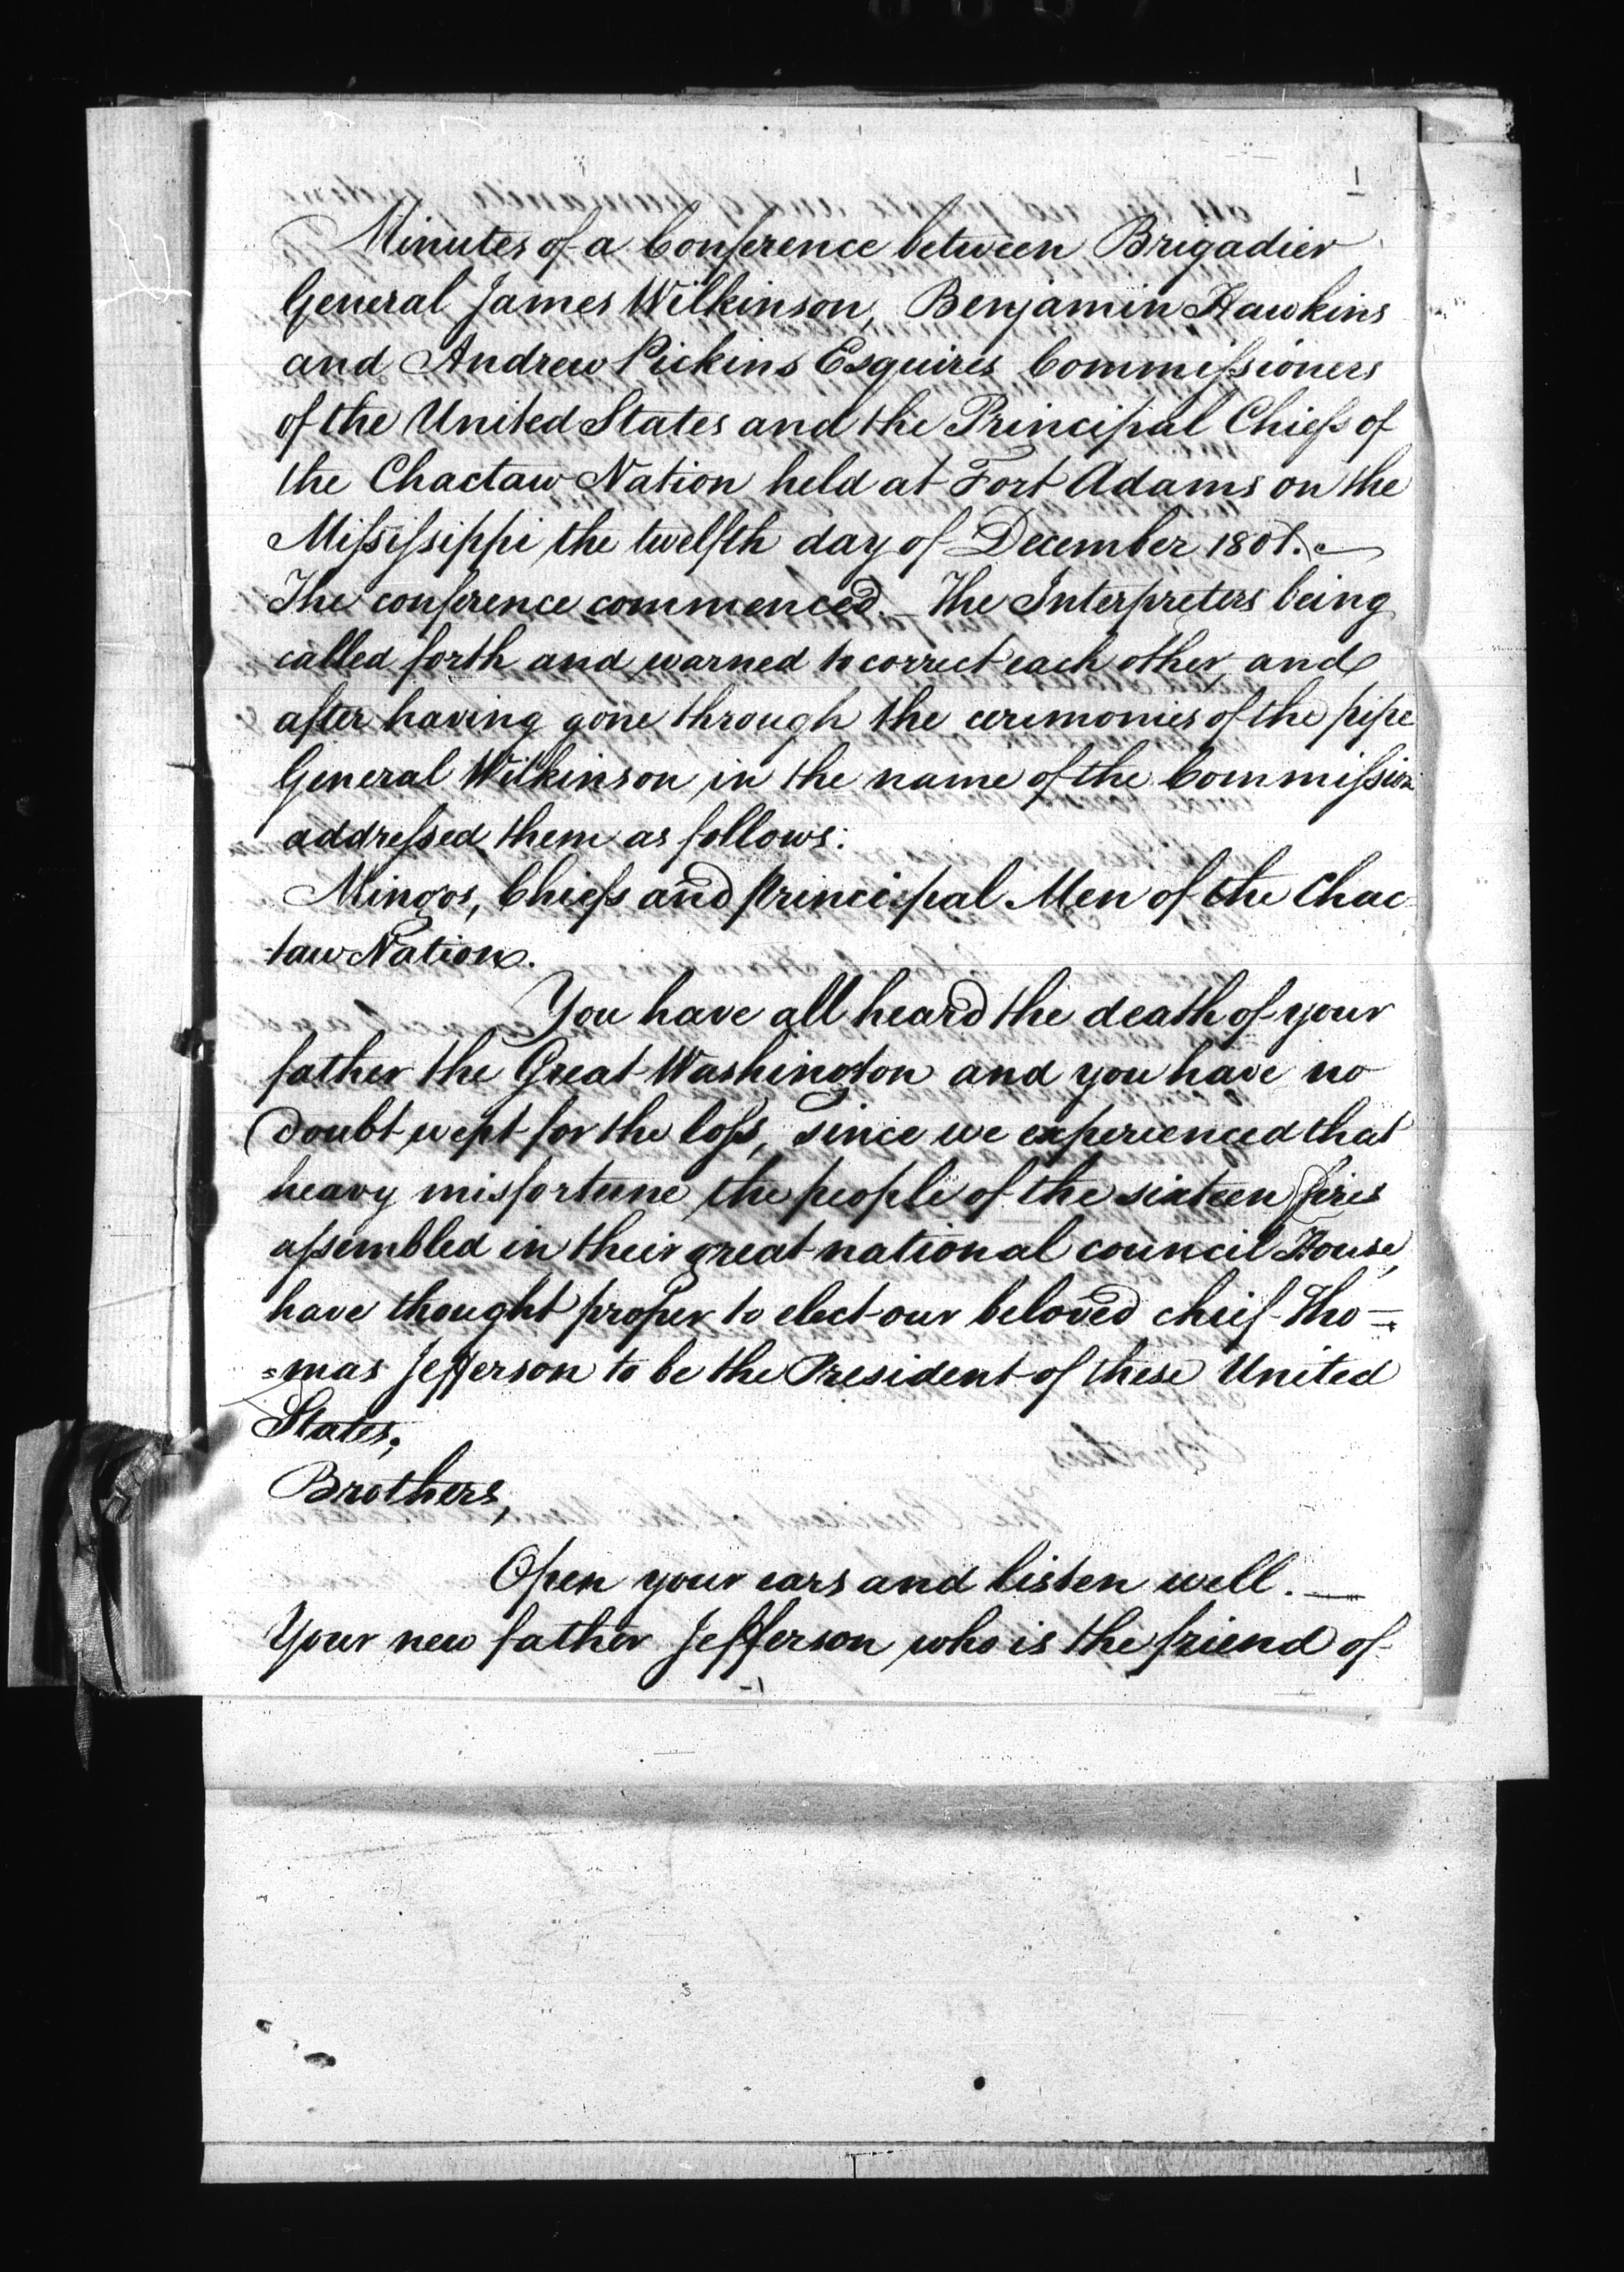 1
Minutes of a Conference between Brigadier
General James Wilkinson, Benjamin Hawkins
and Andrew Pickins Esquires Commissioners
of the United States and the Principal Chiefs of
the Chactaw Nation held at Fort Adams on the
Mississippi the twelfth day of December 1801.
The conference commenced. — The Interpreters being
called forth and warned to correct each other, and
after having gone through the ceremonies of the pipe
General Wilkinson in the name of the Commission
addressed them as follows:
Mingos, Chiefs and principal Men of the Chac-
-taw Nation.
You have all heard the death of your
father the Great Washington and you have no
doubt wept for the loss, since we experienced that
heavy misfortune the people of the sixteen fires
assembled in their great national council House,
have thought proper to elect our beloved chief Tho=
=mas Jefferson to be the President of these United
States;
Brothers,
Open your ears and listen well. —
Your new father Jefferson who is the friend of